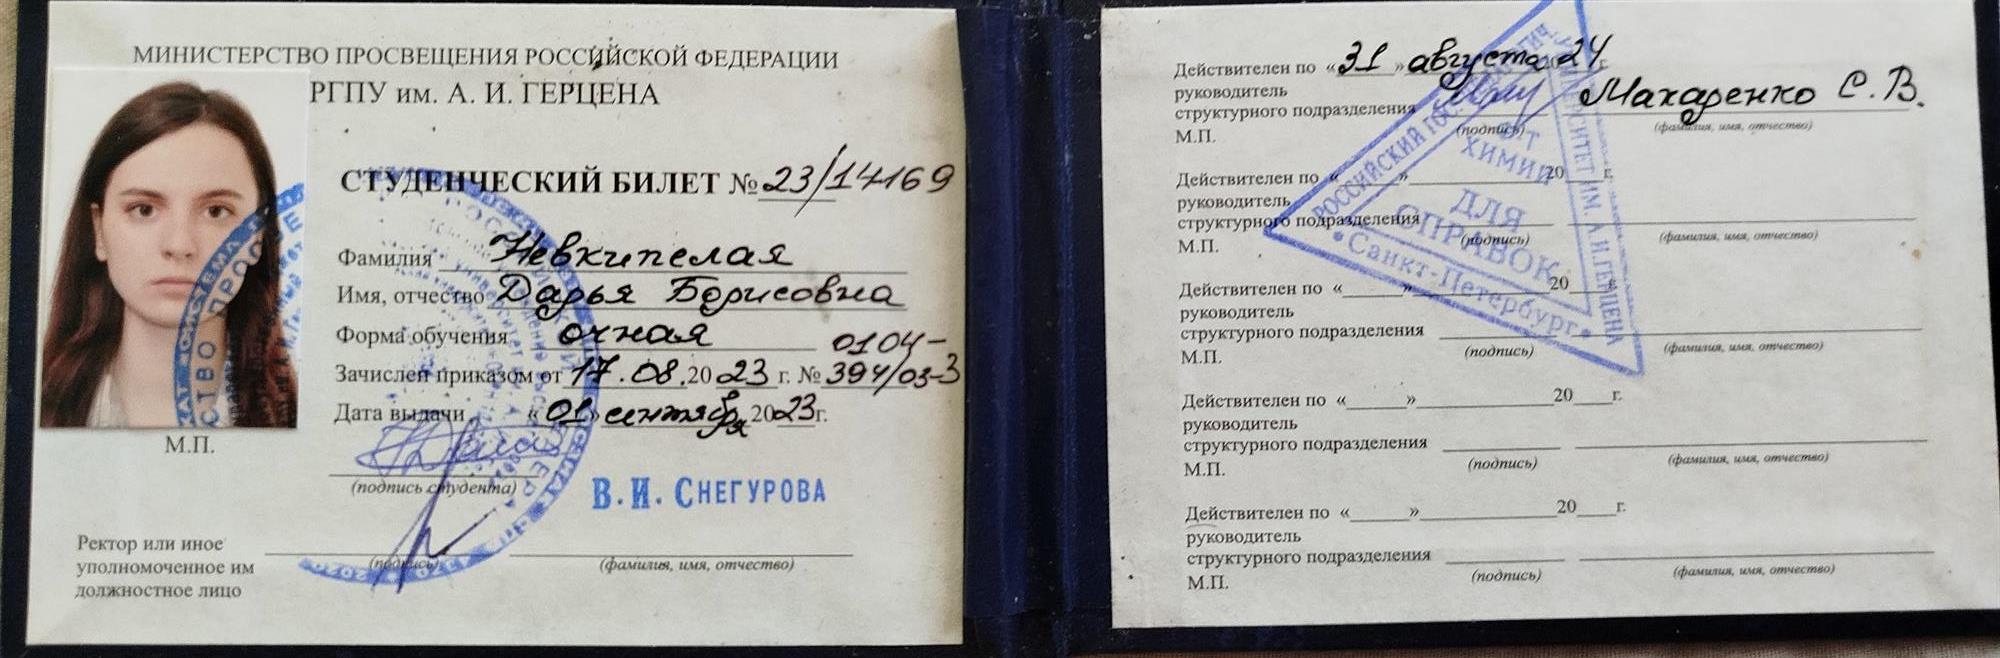 МИНИСТЕРСТВО ПРОСВЕЩЕНИЯ РОССИЙСКОЙ ФЕДЕРАЦИИ
РГПУ им. А. И. ГЕРЦЕНА
СТУДЕНЧЕСКИЙ БИЛЕТ № 23/14169
Фамилия Невкипелая
Имя, отчество Дарья Борисовна
Форма обучения очная 0104-
Зачислен приказом от 17.08.2023 г. № 394/03-З
Дата выдачи «01» сентября 2023г.
М.П.
(подпись студента)
В.И. СНЕГУРОВА
Ректор или иное
уполномоченное им
должностное лицо
(подпись) (фамилия, имя, отчество)
Действителен по «31» августа 2024 г.
руководитель
структурного подразделения Макаренко С.В.
М.П. (подпись) (фамилия, имя, отчество)
Действителен по «____»____________20____г.
руководитель
структурного подразделения
М.П. (подпись) (фамилия, имя, отчество)
Действителен по «____»____________20____г.
руководитель
структурного подразделения
М.П. (подпись) (фамилия, имя, отчество)
Действителен по «____»____________20____г.
руководитель
структурного подразделения
М.П. (подпись) (фамилия, имя, отчество)
Действителен по «____»____________20____г.
руководитель
структурного подразделения
М.П. (подпись) (фамилия, имя, отчество)
ХИМИИ
ДЛЯ
СПРАВОК
Санкт-Петербург
РОССИЙСКИЙ
ИМ. А.И.ГЕРЦЕНА